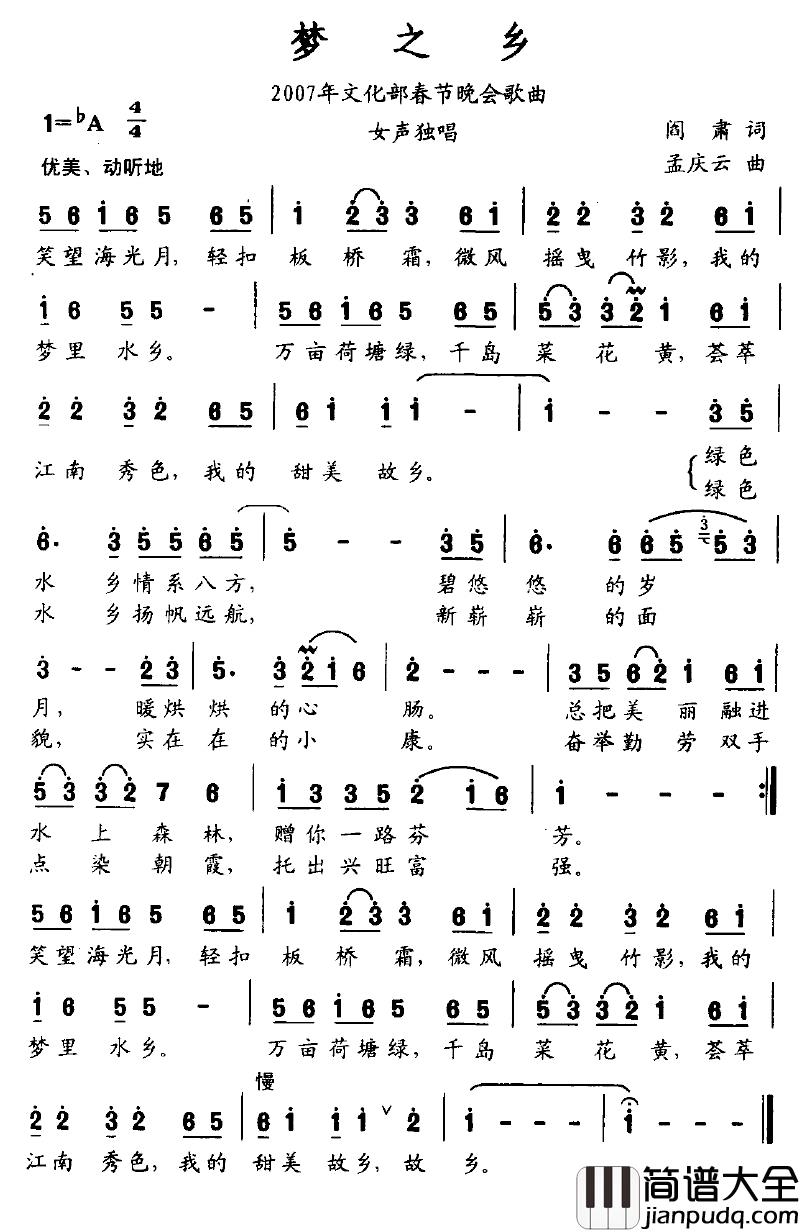 梦之乡
2007年文化部春节晚会歌曲
1=♭A 4/4
女声独唱
阎肃词
优美、动听地
孟庆云曲
5 6 i 6 5 6 5 | i 2 3 3 6 i | 2 2 3 2 6 i |
笑望海光月,轻扣 板桥霜,微风 摇曳竹影,我的
i 6 5 5 - | 5 6 i 6 5 6 5 | 5 3 3 2 i 6 i |
梦里水乡。 万亩荷塘绿,千岛 菜花黄,荟萃
2 2 3 2 6 5 | 6 i i i - | i - - 3 5 |
江南秀色,我的 甜美故乡。 绿色
绿色
6. 3 5 5 6 5 | 5 - - 3 5 | 6. 6 5 3 5 3 |
水 乡情系八方, 碧悠 悠 的岁
水 乡扬帆远航, 新崭 崭 的面
3 - - 2 3 | 5. 3 2 i 6 | 2 - - - | 3 5 6 2 i 6 i |
月, 暖烘 烘 的心 肠。 总把美丽融进
貌, 实在 在 的小 康。 奋举勤劳双手
5 3 3 2 7 6 | i 3 3 5 2 i 6 | i - - - :|
水上森林, 赠你一路芬 芳。
点染朝霞, 托出兴旺富 强。
5 6 i 6 5 6 5 | i 2 3 3 6 i | 2 2 3 2 6 i |
笑望海光月,轻扣 板桥霜,微风 摇曳竹影,我的
i 6 5 5 - | 5 6 i 6 5 6 5 | 5 3 3 2 i 6 i |
梦里水乡。 万亩荷塘绿,千岛 菜花黄,荟萃
慢
2 2 3 2 6 5 | 6 i i i ∨ 2 | i - - - | i - - - ‖
江南秀色,我的 甜美故乡,故 乡。
简谱大全
jianpudq.com